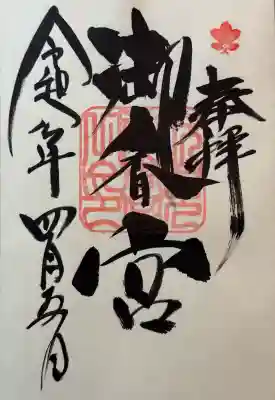 奉拝
御香宮
令和年四月五日